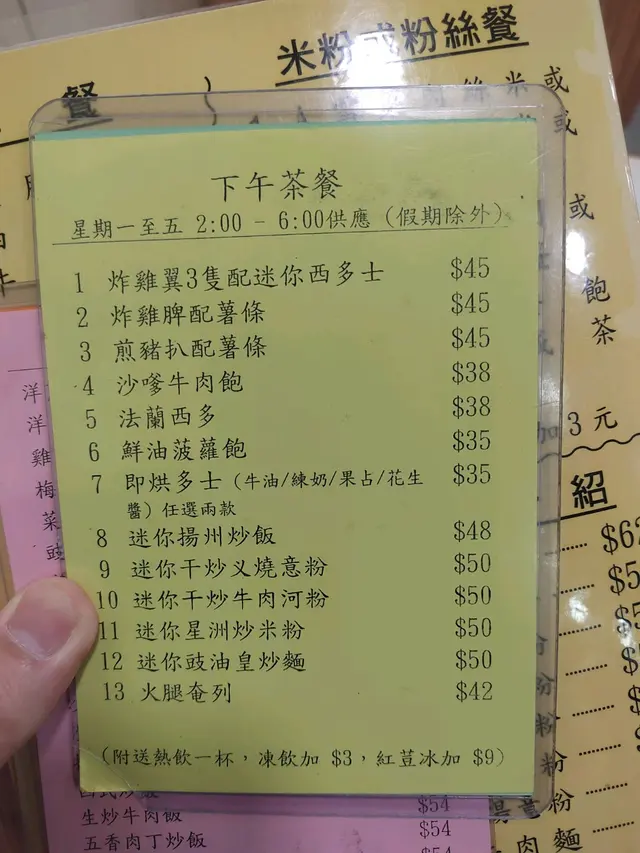 米粉或粉絲餐
餐
下午茶餐
星期一至五 2:00 - 6:00供應 (假期除外)
1 炸雞翼3隻配迷你西多士 $45
2 炸雞脾配薯條 $45
3 煎豬扒配薯條 $45
4 沙嗲牛肉飽 $38
5 法蘭西多 $38
6 鮮油菠蘿飽 $35
7 即烘多士 (牛油/練奶/果占/花生 $35
醬) 任選兩款
8 迷你揚州炒飯 $48
9 迷你干炒叉燒意粉 $50
10 迷你干炒牛肉河粉 $50
11 迷你星洲炒米粉 $50
12 迷你豉油皇炒麵 $50
13 火腿奄列 $42
(附送熱飲一杯，凍飲加 $3，紅荳冰加 $9)
絲米或
或
或
飽
茶
3元
紹
洋
洋
雞
梅
菜
豉
$54
生炒牛肉飯 $54
五香肉丁炒飯
粉
粉
肉麵